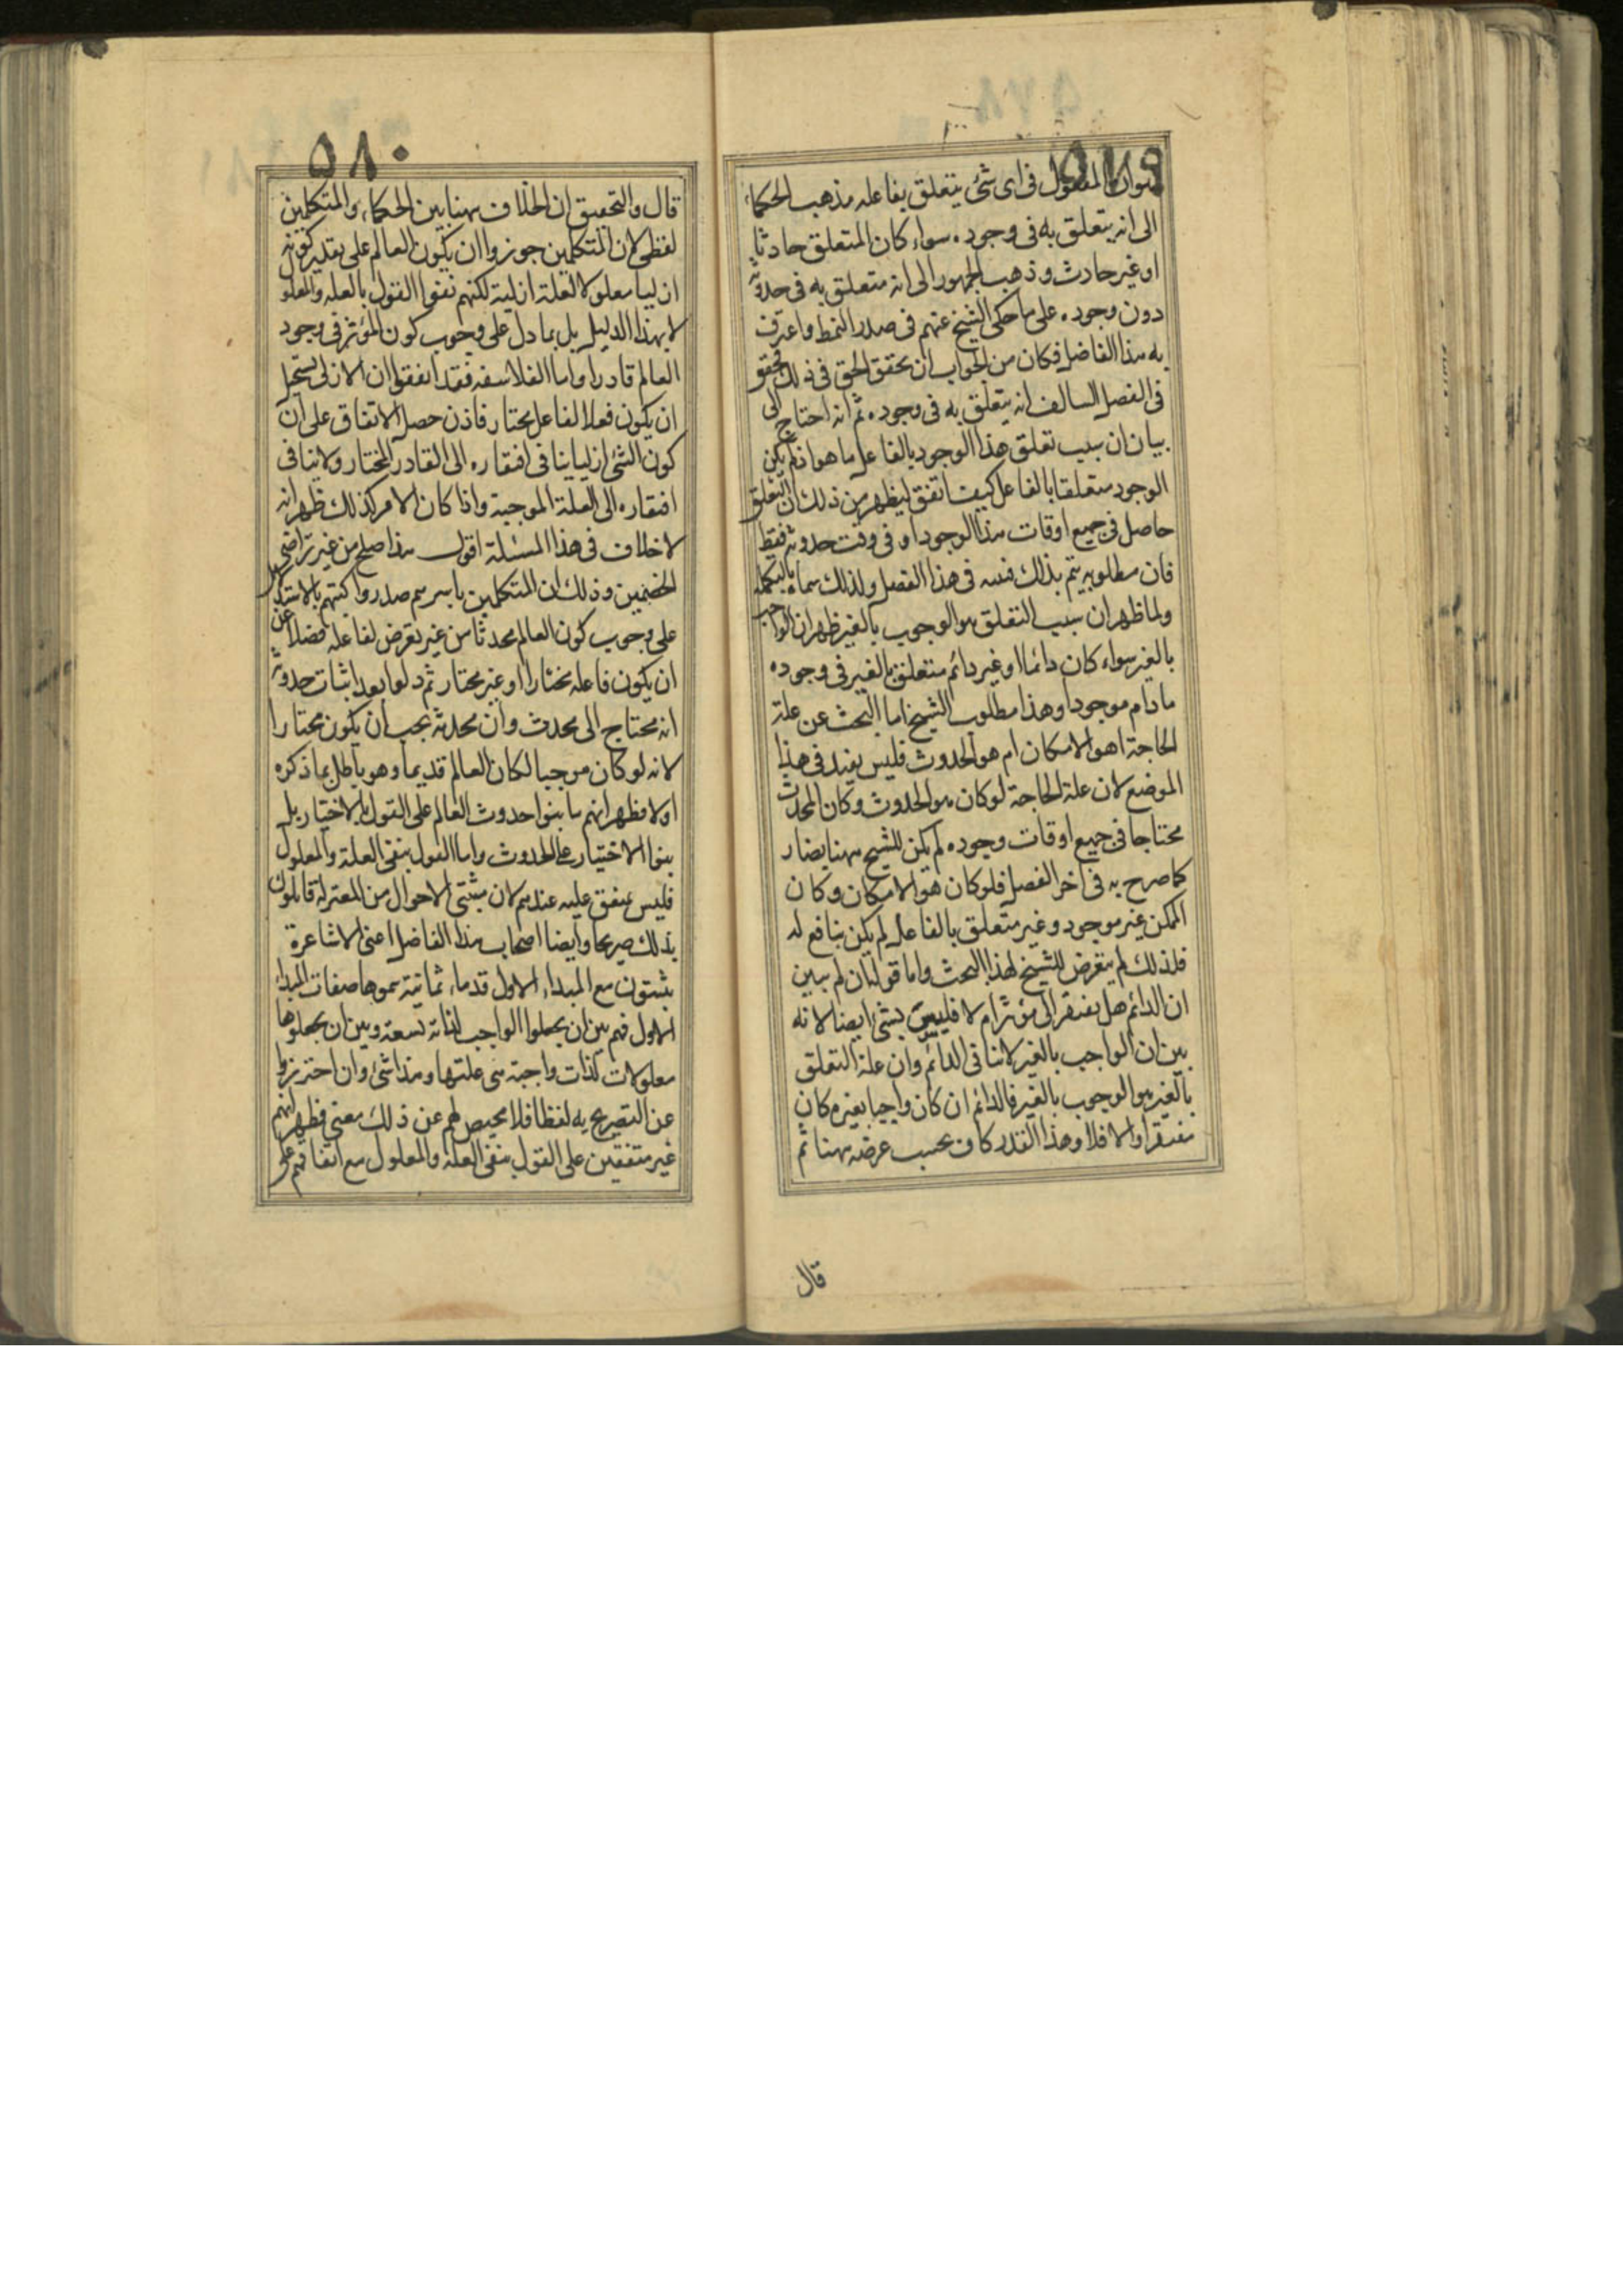 ٥٧٩
هو ان المفعول فى اى شئ يتعلق بفاعله مذهب الحكماء
الى انه يتعلق به فى وجوده سواء كان المتعلق حادثا
او غير حادث وذهب الجمهور الى انه متعلق به فى حدوثه
دون وجوده على ما حكى الشيخ عنهم فى صدر النمط واعترف
به هذا الفاضل فكان من الجواب ان يحقق الحق فى ذلك فحقق
فى الفصل السالف انه يتعلق به فى وجوده ثم انه احتاج الى
بيان ان سبب تعلق هذا الوجود بالفاعل ما هو اذ لم يكن
الوجود متعلقا بالفاعل كيف اتفق ليظهر من ذلك ان التعلق
حاصل فى جميع اوقات هذا الوجود او فى وقت حدوثه فقط
فان مطلوبه يتم بذلك فبينه فى هذا الفصل ولذلك سماه بالتكملة
ولما ظهر ان سبب التعلق هو الوجوب بالغير ظهر ان الواجب
بالغير سواء كان دائما او غير دائم متعلق بالغير فى وجوده
ما دام موجودا وهذا مطلوب الشيخ اما البحث عن علة
الحاجة اهو الامكان ام هو الحدوث فليس يفيد فى هذا
الموضع لان علة الحاجة لو كان هو الحدوث وكان المحدث
محتاجا فى جميع اوقات وجوده لم يكن للشيخ ههنا يضار
كما صرح به فى اخر الفصل فلو كان هو الامكان وكان
الممكن غير موجود وغير متعلق بالفاعل لم يكن بنافع له
فلذلك لم يتعرض للشيخ لهذا البحث واما قوله ان لم يبين
ان الدائم هل يفتقر الى مؤثر ام لا فليس بشئ ايضا لانه
بين ان الواجب بالغير لا ينافى الدائم وان علة التعلق
بالغير هو الوجوب بالغير فالدائم ان كان واجبا بغيره كان
مفتقرا والا فلا وهذا القدر كاف بحسب غرضه ههنا ثم
قال
٥٨٠
قال والتحقيق ان الخلاف ههنا بين الحكماء والمتكلمين
لفظى لان المتكلمين جوزوا ان يكون العالم على تقدير كونه
ازليا معلولا لعلة ازلية لكنهم نفوا القول بالعلة والمعلول
لا بهذا الدليل بل بما دل على وجوب كون المؤثر فى وجود
العالم قادرا واما الفلاسفه فقد اتفقوا ان الازلى يستحيل
ان يكون فعلا لفاعل مختار فاذن حصل الاتفاق على ان
كون الشئ ازليا ينافى افتقاره الى القادر المختار ولا ينافى
افتقاره الى العلة الموجبة واذا كان الامر كذلك ظهر انه
لا خلاف فى هذا المسئلة اقول هذا صلح من غير تراضى
الخصمين وذلك ان المتكلمين باسرهم صدروا كتبهم بالاستدلال
على وجوب كون العالم محدثا من غير تعرض لفاعله فضلا عن
ان يكون فاعله مختارا او غير مختار ثم دلوا بعد اثبات حدوثه
انه محتاج الى محدث وان محدثه يجب ان يكون مختارا
لانه لو كان موجبا لكان العالم قديما وهو باطل بما ذكره
اولا فظهر انهم ما بنوا حدوث العالم على القول بالاختيار بل
بنوا الاختيار على الحدوث واما القول بنفى العلة والمعلول
فليس بمتفق عليه عندهم لان مثبتى الاحوال من المعتزلة قائلون
بذلك صريحا وايضا اصحاب هذا الفاضل اعنى الاشاعرة
يثبتون مع المبداء الاول قدماء ثمانية سموها صفات المبداء
الاول فهم بين ان يجعلوا الواجب لذاته تسعة وبين ان يجعلوها
معلولات لذات واجبة هى علتها وهذا شئ وان احترزوا
عن التصريح به لفظا فلا محيص لهم عن ذلك معنى فظهر انهم
غير متفقين على القول بنفى العلة والمعلول مع اتفاقهم على